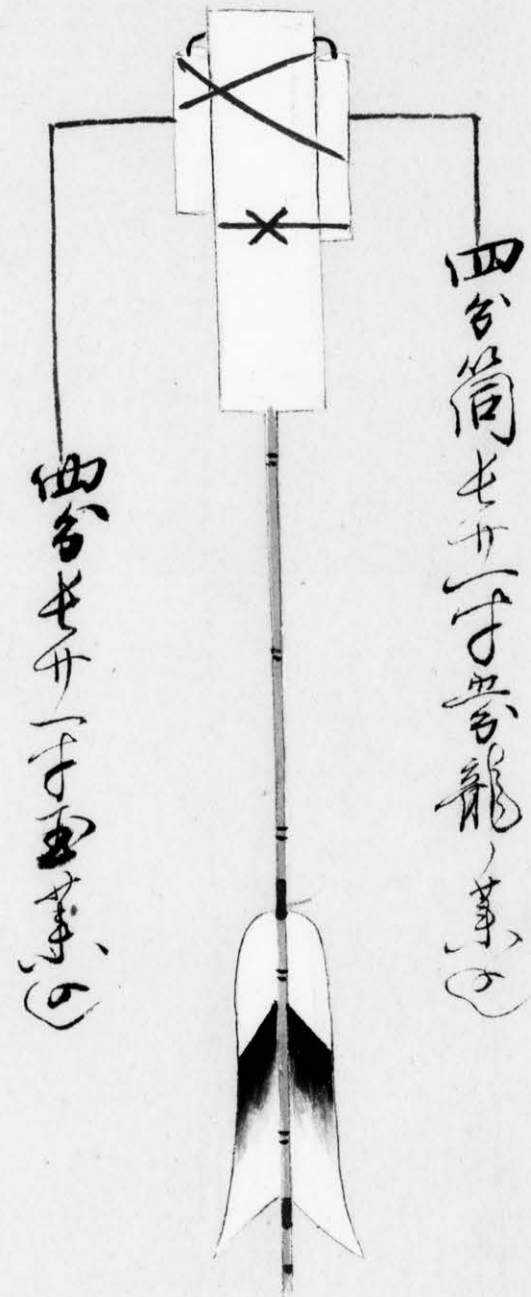 四分筒長サ一寸雲龍ノ薬込
四分長サ一寸玉薬込